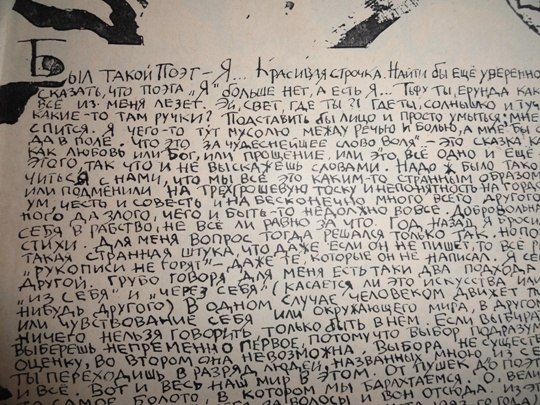 Был такой Поэт – Я... Красивая строчка. Найти бы ещё уверенно
сказать, что поэта „Я" больше нет, а есть Я... Тьфу ты, ерунда как
всё из меня лезет. Эй, свет, где ты?! Где ты, солнышко и
какие-то там ручки? Подставить бы лицо и просто умыться: мне
спится. Я чего-то тут мусолю между речью и болью, а мне бы
да в поле. Что это за чудеснейшее слово воля" – это сказка,
как любовь или Бог, или прощение, или это всё одно и ещё
этого так что и не выскажешь словами. Надо ж было
читься с нами, что мы все это каким-то странным образом
или подменили на трёхгрошевую тоску и непонятность на
ум, честь и совесть и на бесконечно много всего другого
ного да злого, чего и быть-то недолжно вовсе. Добровольно
себя в рабство, не всё ли равно за что. Год назад я бросил
стихи. Для меня вопрос тогда решался только так, но
такая странная штука что даже если он не пишет, то всё
„рукописи не горят" – даже те, которые он не написал. Я
другой. Грубо говоря для меня есть таки два подхода
„из себя" и „через себя" (касается ли это искусства или
нибудь другого) в одном случае человеком движет
или чувствование себя или окружающего мира, в
ничего нельзя говорить только быть в нём. Если
выберешь непременно первое, потому что выбор
оценку, во втором она невозможна выбора не
ты переходишь в разряд людей, названных мною из
и всё. Вот и весь наш мир в этом от пушек до
болото, в котором мы барахтаемся. О,
за волосы и вон отсюда. Из